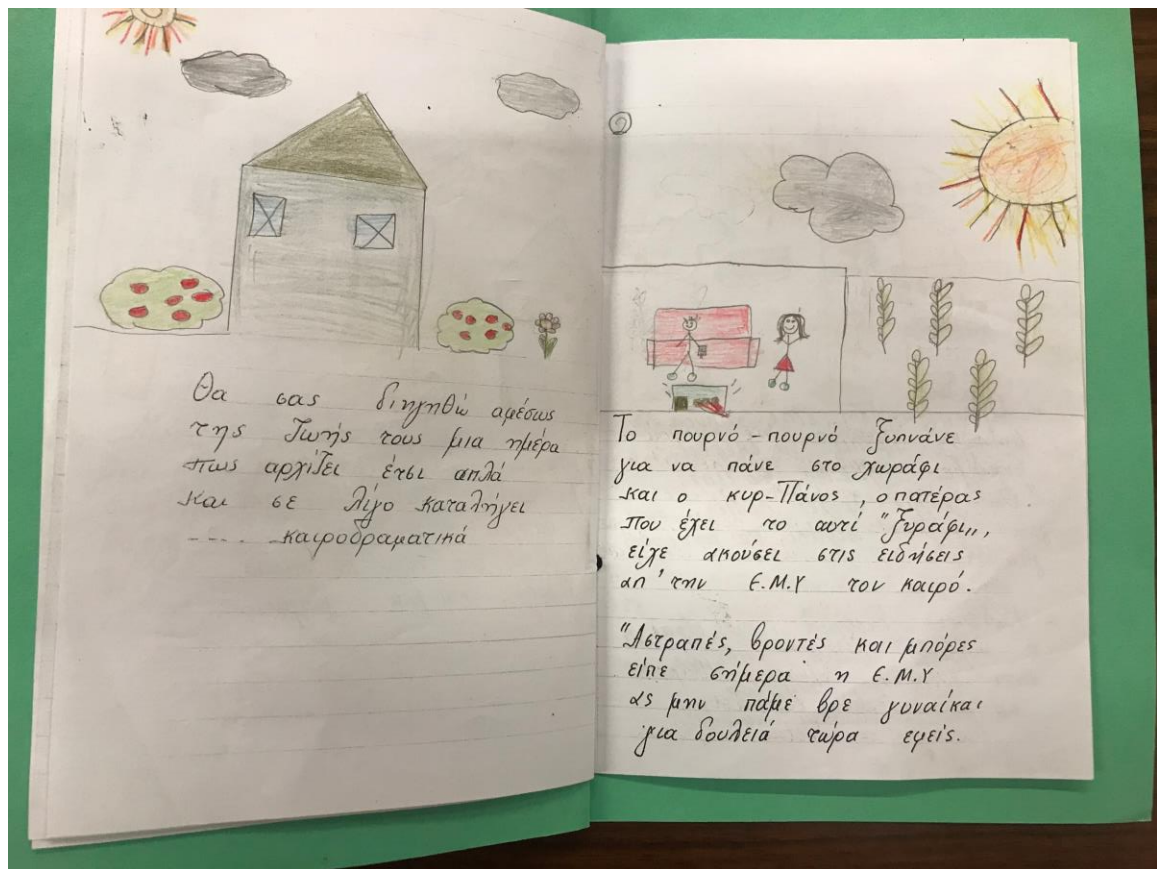 Θα σας διηγηθώ αμέσως
της ζωής τους μια ημέρα
πως αρχίζει έτσι απλά
και σε λίγο καταλήγει
---- -καιροδραματικά
Το πουρνό-πουρνό ξυπνάνε
για να πάνε στο χωράφι
και ο κυρ-Πάνος, ο πατέρας
που έχει το αυτί "ξυράφι",
είχε ακούσει στις ειδήσεις
απ' την Ε.Μ.Υ τον καιρό.
"Αστραπές, βροντές και μπόρες
είπε σήμερα η Ε.Μ.Υ
ας μην πάμε βρε γυναίκα
για δουλειά τώρα εμείς.